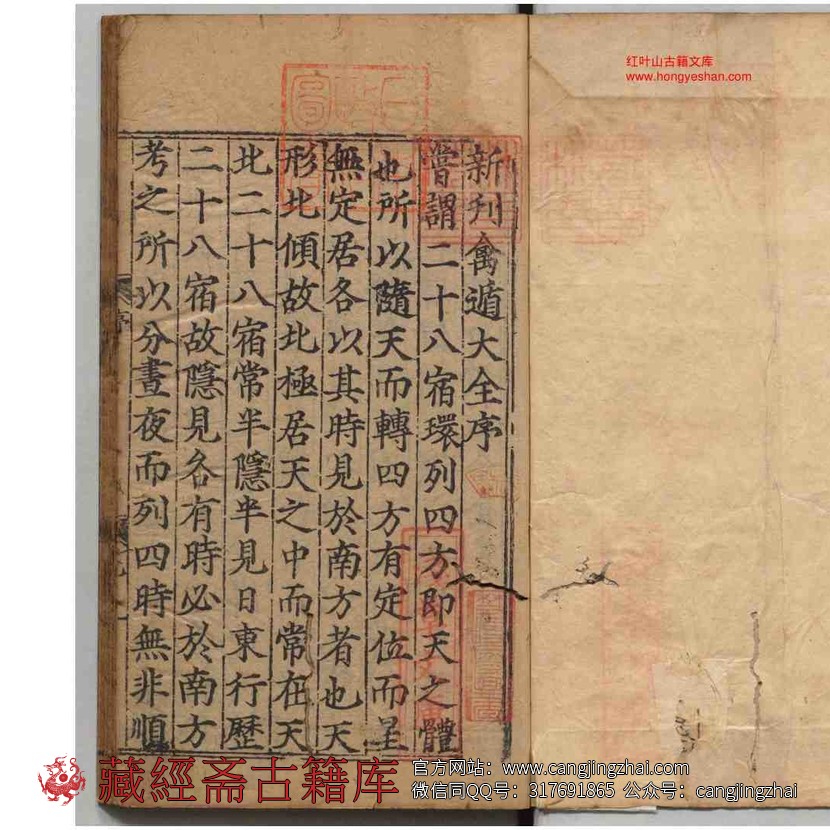 红叶山古籍文库
www.hongyeshan.com
新刋禽遁大全序
嘗謂二十八宿環列四方即天之體
也所以隨天而轉四方有定位而星
無定居各以其時見於南方者也天
形北傾故北極居天之中而常在天
北二十八宿常半隱半見日東行歷
二十八宿故隱見各有時必於南方
考之所以分晝夜而列四時無非順
序
藏經斋古籍库
官方网站：www.cangjingzhai.com
微信同QQ号：317691865 公众号：cangjingzhai